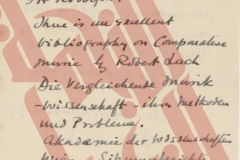 There is an excellent
bibliography on Comparative
music by Robert Lach
Die Vergleichende Musik
-Wissenschaft - ihre Methoden
und Probleme.
Akademie der Wissenschaften